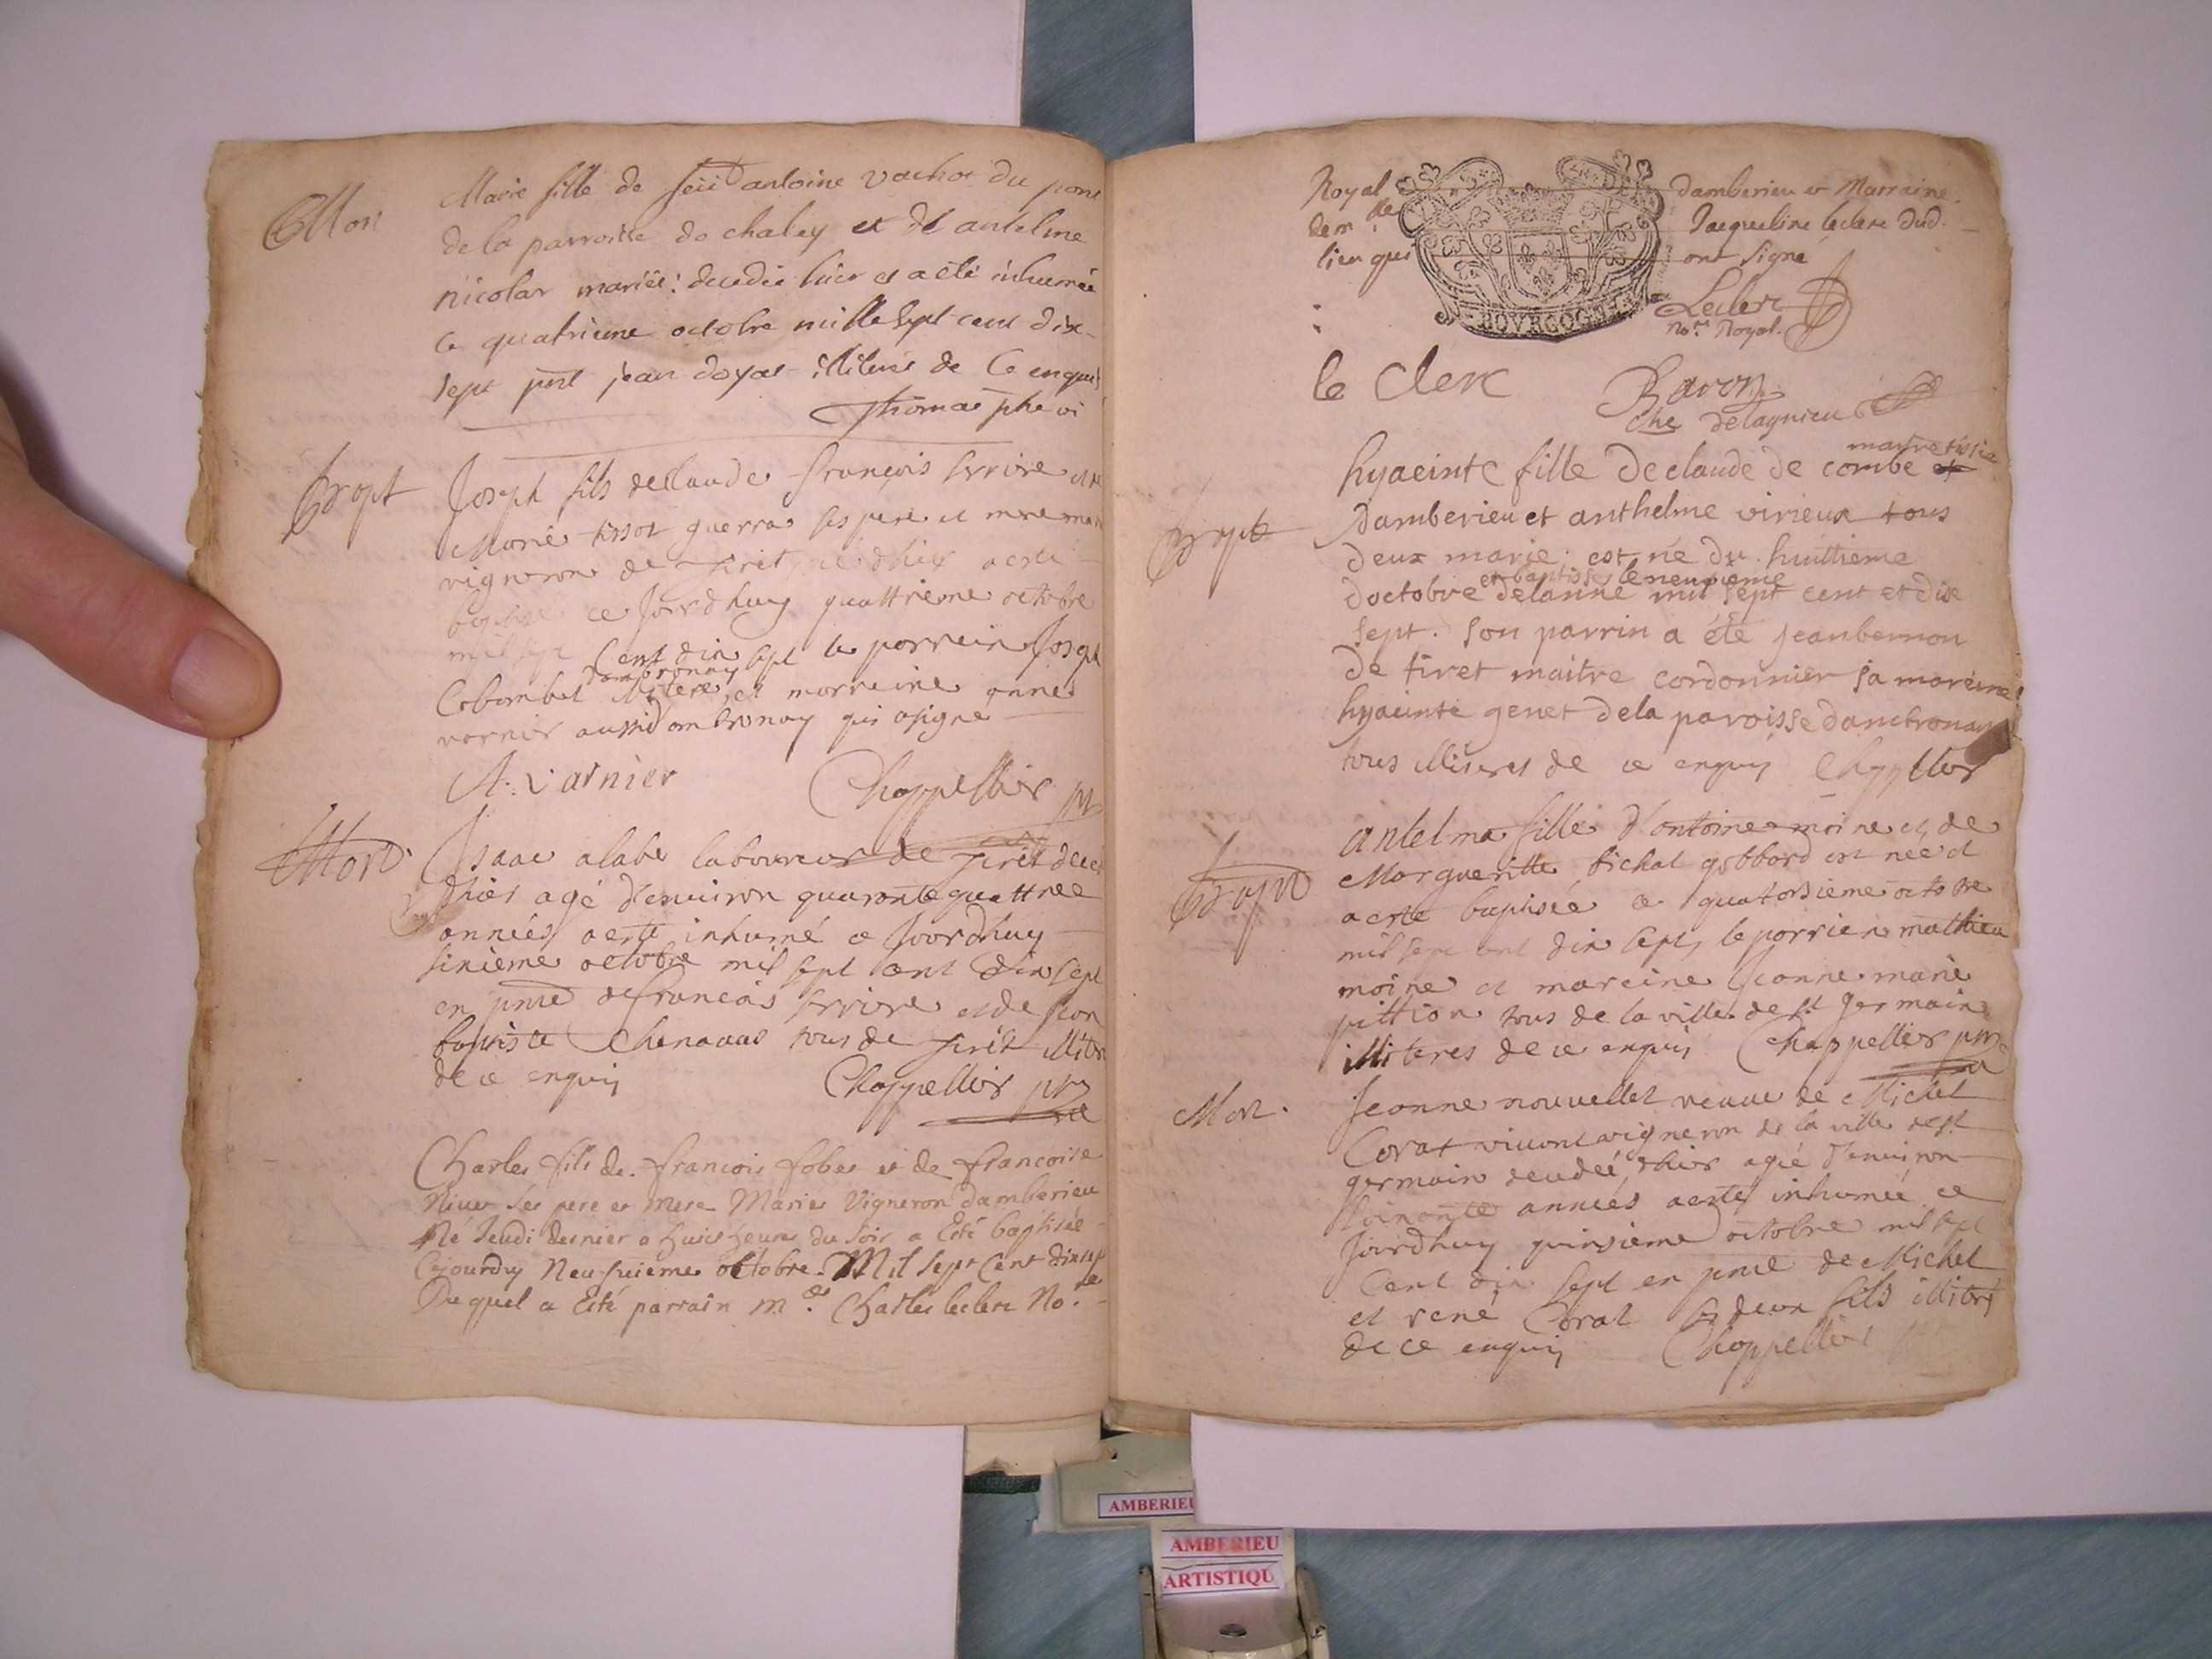 Mort
Marie fille de feü antoine vachot du pont
de la parroisse de chaley et de antelme
nicolas mariés: decedée hier et a été inhumée
ce quatrieme octobre mille sept cent dix-
sept pnt jean doyat illiteré de ce enquis
Thomas pbr vi
Bapt
Joseph fils de Claude françois servire et
Marie tissot guerra ses pere et mere mar
vigneron de tiret né dhier a esté
baptise ce Jourdhuy quattrieme octobre
mil sept cent dix sept le parrein Joseph
dambronay
Colombet illiteré, et marreine anne
varnier aussi dombronay qui a signe
A. varnier Chappellier
Mort
Isaac alabe laboureur de tirét deced
dhier agé d'environ quarante quattree
années, a esté inhumé ce Jourdhuy
sixieme octobre mil sept cent dix sept
en pnce de francois servire et de jean
baptiste Chenavas tous de tirét illite
de ce enquis Chappellier
Charles fils de francois fobes et de francoise
Niuer ses pere et mere Maries Vigneron damberieu
Né Jeudi dernier a huit heures du soir a Esté baptisée
Cejourdy Neufuieme octobre Mil sept Cent dixsep
Duquel a Esté parrain mre Charles leclerc No.re
Royal damberieu et Marraine
dem.lle Jacqueline leclerc dud.
lieu qui ont signé
BOVRGOGNE
Leclerc
no.re Royal.
le Clerc Baron
che delagnieu
maitre tissie
hyacinte fille de claude de combe et
Bapt
damberieu et anthelme virieux tous
deux marié. est né du huittieme
et baptisse le neuvieme
doctobre delanné mil sept cent et dix
sept. son parrin a été jean bernon
de tiret maitre cordonnier sa mareine
hyacinte genet dela paroisse dambronay
tous illiteres de ce enquis Chappellier
Bapt
antelma fille d'antoine moine et de
Margueritte tichat gobbard est nee et
a esté baptisée ce quatorsieme octobre
mil sept cent dix sept, le parrien mathieu
moine et mareine jeanne marie
pittion tous de la ville de st germain
illiteres de ce enquis Chappellier
Mort.
Jeanne nouvellet veuve de Michel
Corat vivant vigneron de la ville de st
germain decedeé, dhier agié d'environ
soixante années a esté inhumée ce
Jourdhuy quinsieme octobre mil sept
Cent dix sept en pnce de Michel
et rené Corat ses deux fils illités
de ce enquis Chappellier
AMBERIEU
AMBERIEU
ARTISTIQU